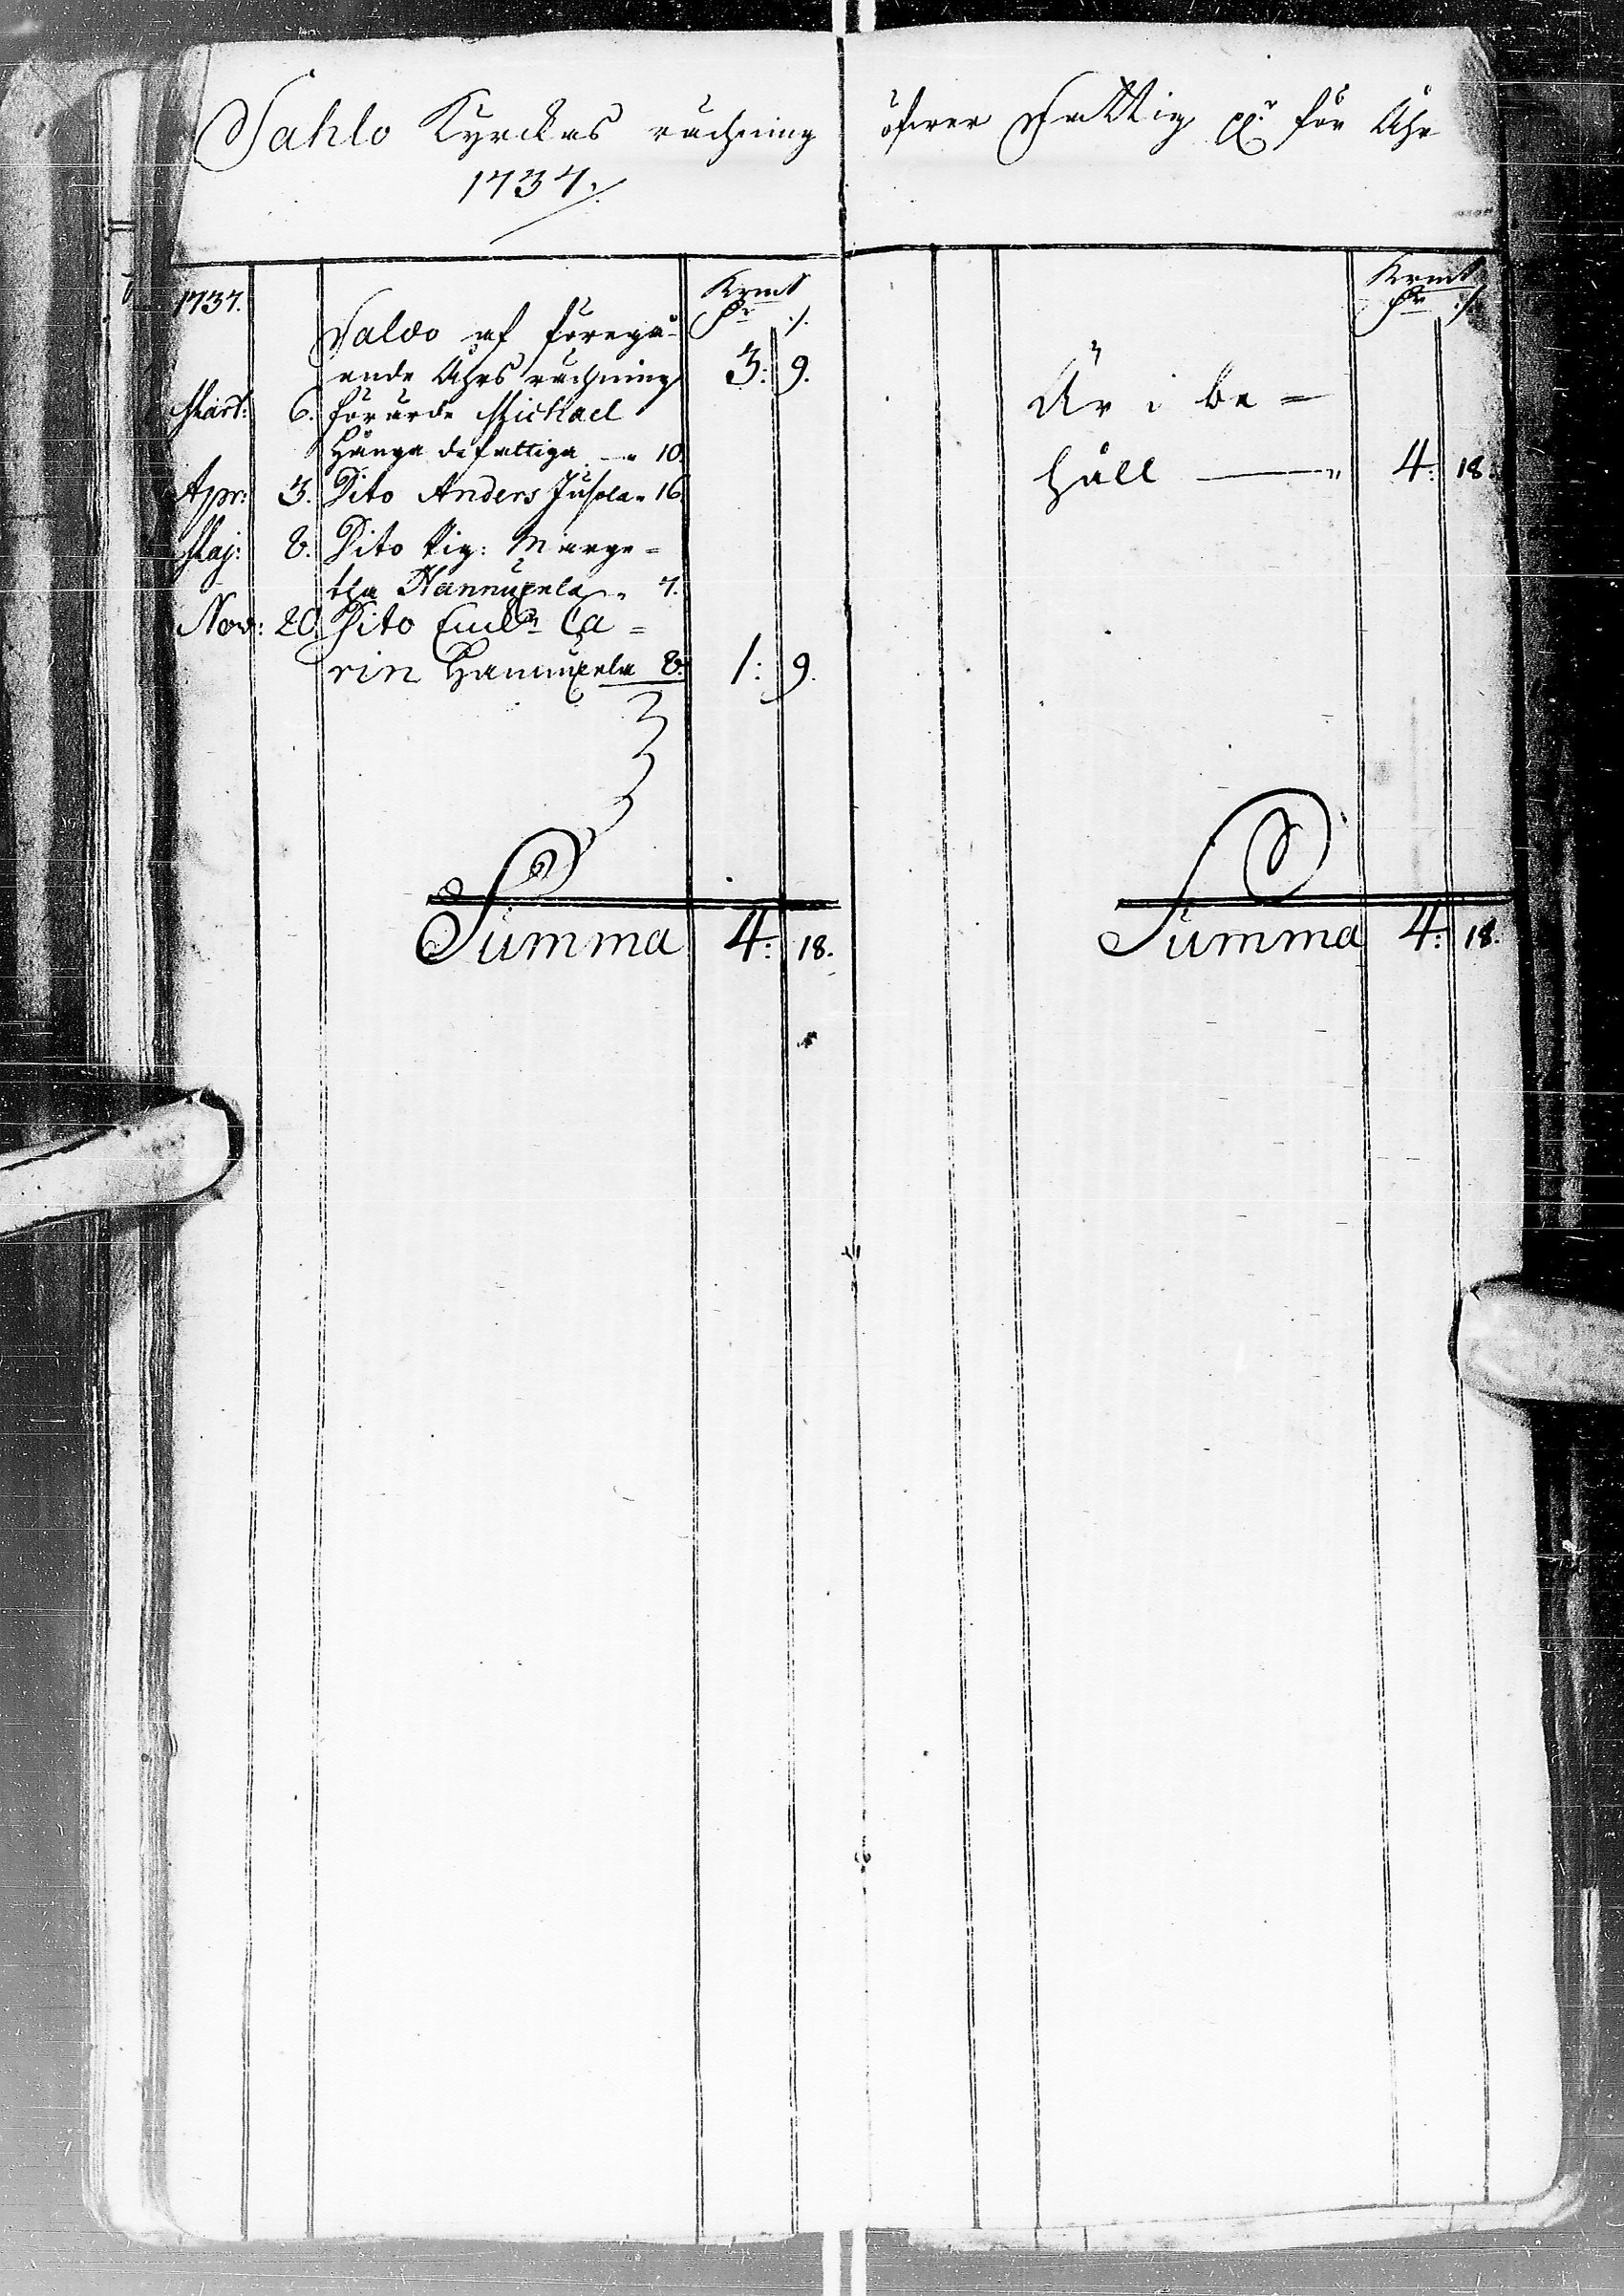 Sahlo Kyrckas räckning öfwer Fattig för Åhr
1737.
1737.
Krmt
Saldo af föregå-
ande Åhrs räckning 3: 9.
Mart: 6. förärde Michael
Hånga de fattiga — " 10.
Apr: 3. Dito Anders Jusola " 16
Maj: 8. Dito Pig: Marge=
tha Hannuxela " 7.
Nov: 20. Dito Enck: Ca=
rin Hannuxela 8. 1: 9.
Summa 4: 18.
Krmt
Är i be=
håll — " 4: 18.
Summa 4: 18.